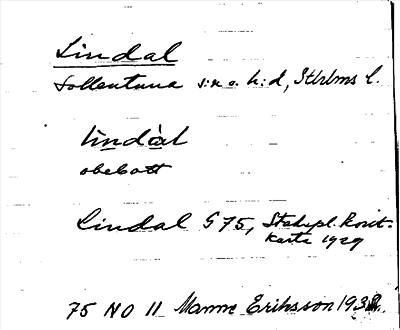 Lindal
Sollentuna s:n o. h:d, Sthlms l.
lìndàl
obebott
Lindal G 75, Stadspl. Kont.
karta 1929
75 NO 11 Manne Eriksson 1932.